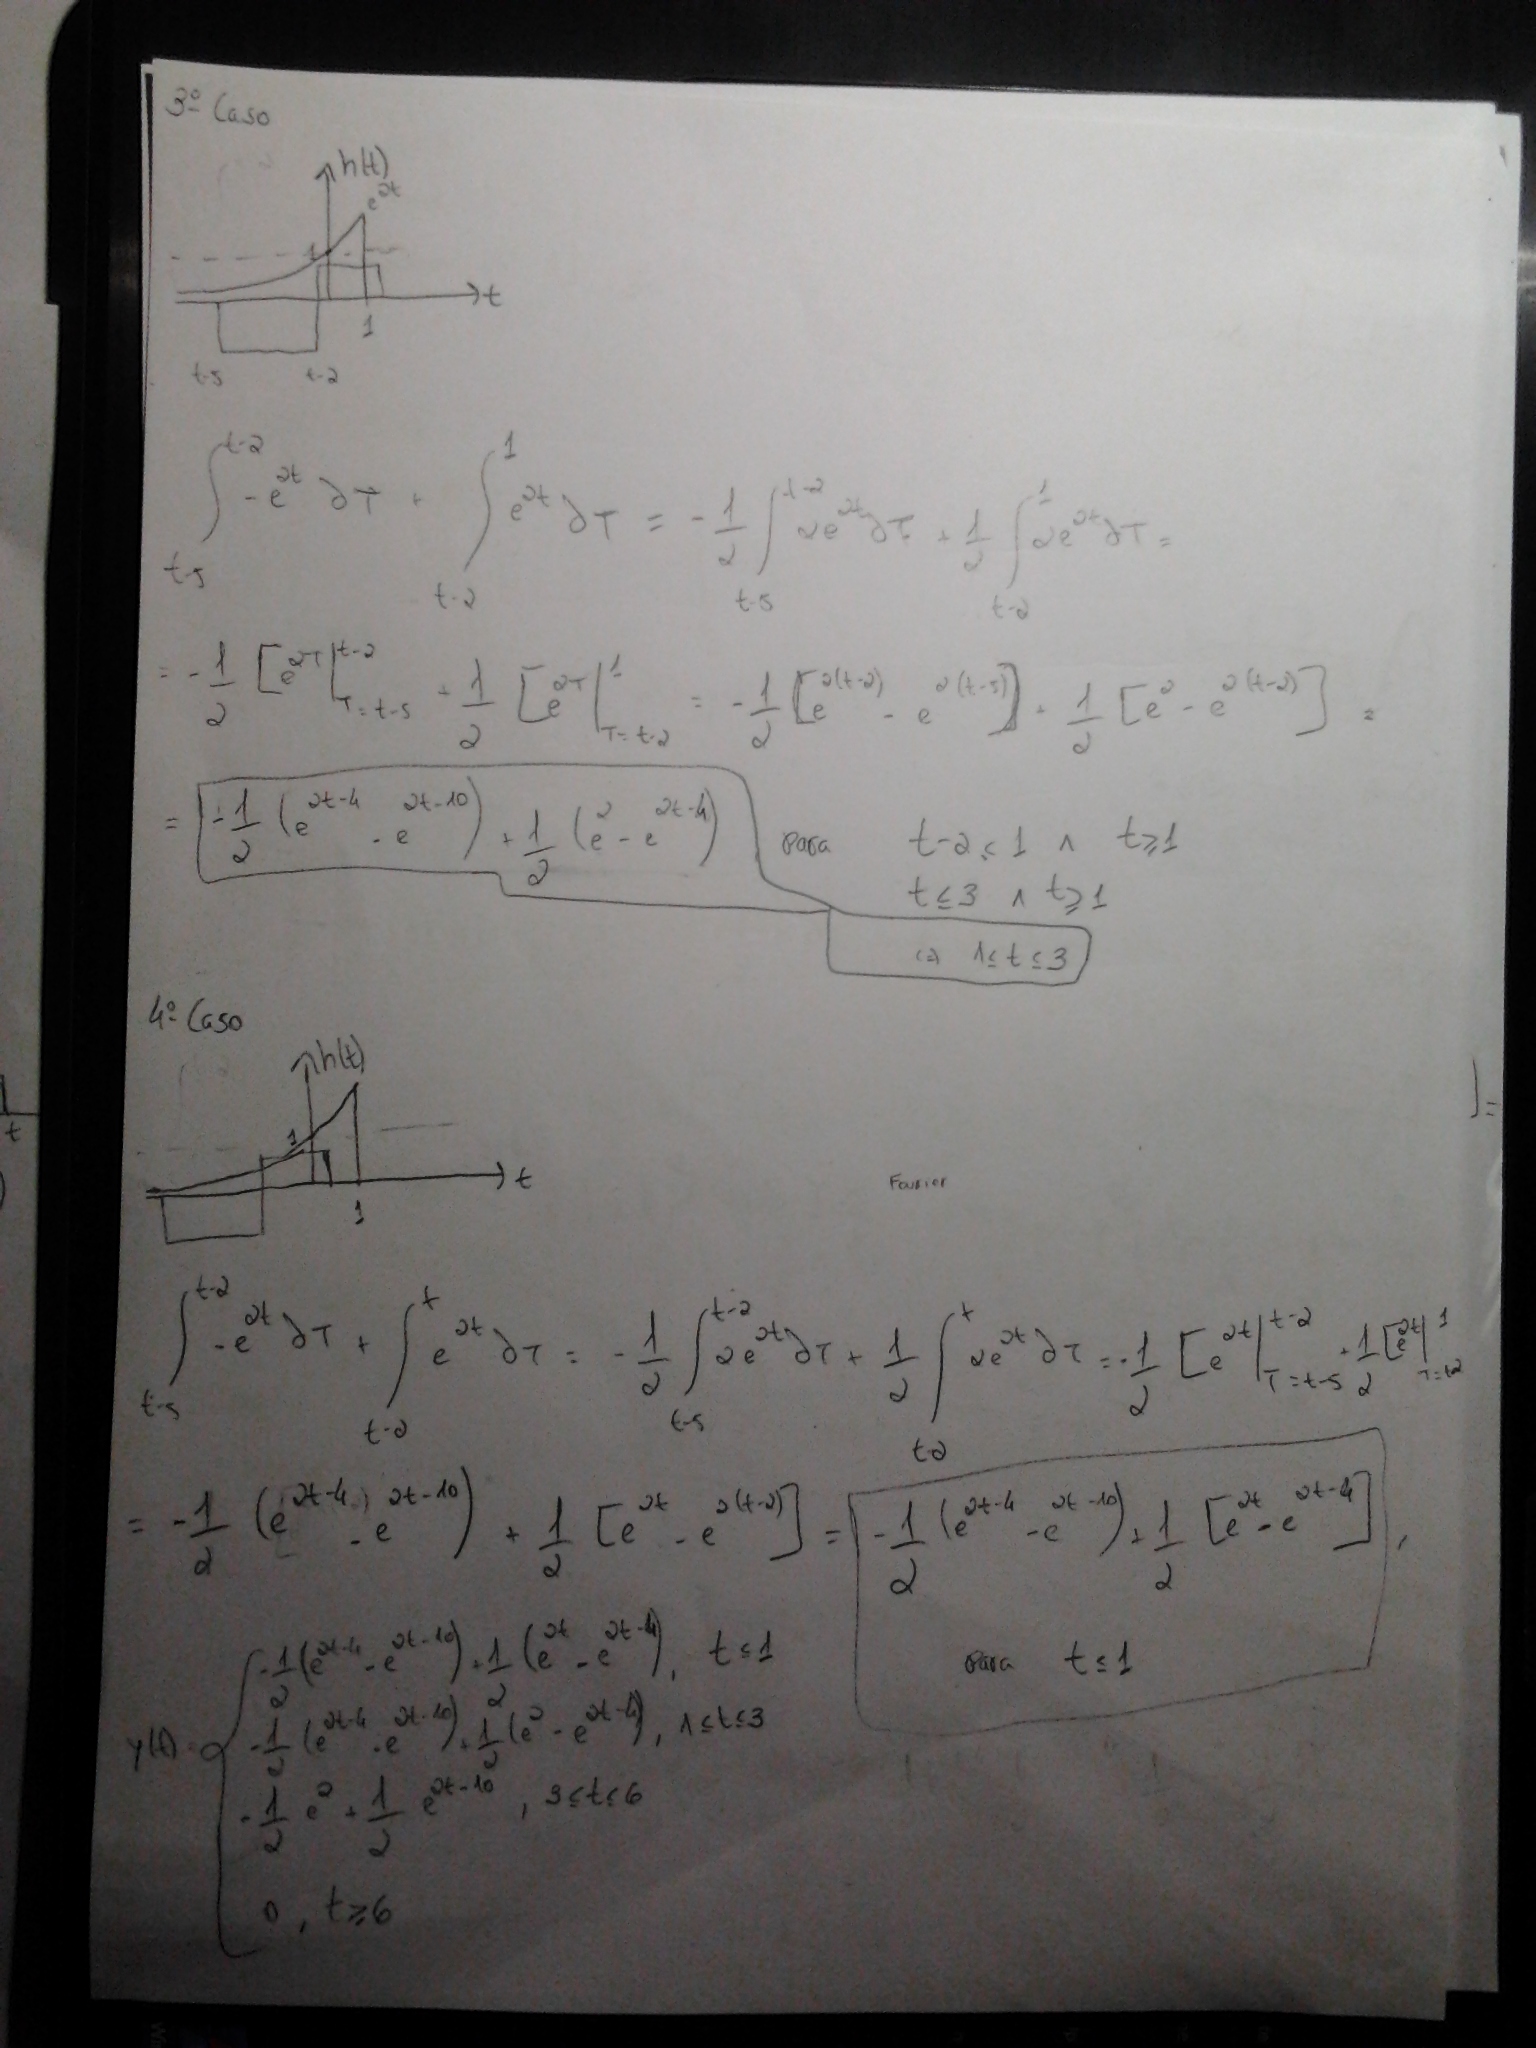 3º Caso
h(t)
e^{2t}
1
t
1
t-5 t-2
∫_{t-5}^{t-2} -e^{2t} ∂τ + ∫_{t-2}^{1} e^{2t} ∂τ = -1/2 ∫_{t-5}^{t-2} 2e^{2t} ∂τ + 1/2 ∫_{t-2}^{1} 2e^{2t} ∂τ =
= -1/2 [e^{2τ}|_{τ=t-5}^{t-2} + 1/2 [e^{2τ}|_{τ=t-2}^{1} = -1/2 [e^{2(t-2)} - e^{2(t-5)}] + 1/2 [e^{2} - e^{2(t-2)}] =
= -1/2 (e^{2t-4} - e^{2t-10}) + 1/2 (e^{2} - e^{2t-4}) para t-2 ≤ 1 ∧ t ≥ 1
t ≤ 3 ∧ t ≥ 1
(=) 1 ≤ t ≤ 3
4º Caso
h(t)
1
t
1
Fourier
∫_{t-5}^{t-2} -e^{2t} ∂τ + ∫_{t-2}^{t} e^{2t} ∂τ = -1/2 ∫_{t-5}^{t-2} 2e^{2t} ∂τ + 1/2 ∫_{t-2}^{t} 2e^{2t} ∂τ = -1/2 [e^{2t}|_{τ=t-5}^{t-2} + 1/2 [e^{2t}|_{τ=t-2}^{1}
= -1/2 (e^{2t-4} - e^{2t-10}) + 1/2 [e^{2t} - e^{2(t-2)}] = -1/2 (e^{2t-4} - e^{2t-10}) + 1/2 [e^{2t} - e^{2t-4}],
para t ≤ 1
y(t) = { -1/2 (e^{2t-4} - e^{2t-10}) + 1/2 (e^{2t} - e^{2t-4}), t ≤ 1
-1/2 (e^{2t-4} - e^{2t-10}) + 1/2 (e^{2} - e^{2t-4}), 1 ≤ t ≤ 3
-1/2 e^{2} + 1/2 e^{2t-10}, 3 ≤ t ≤ 6
0, t ≥ 6
] =
t